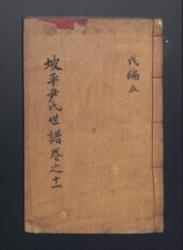 戌編五
坡平尹氏世譜卷之十一